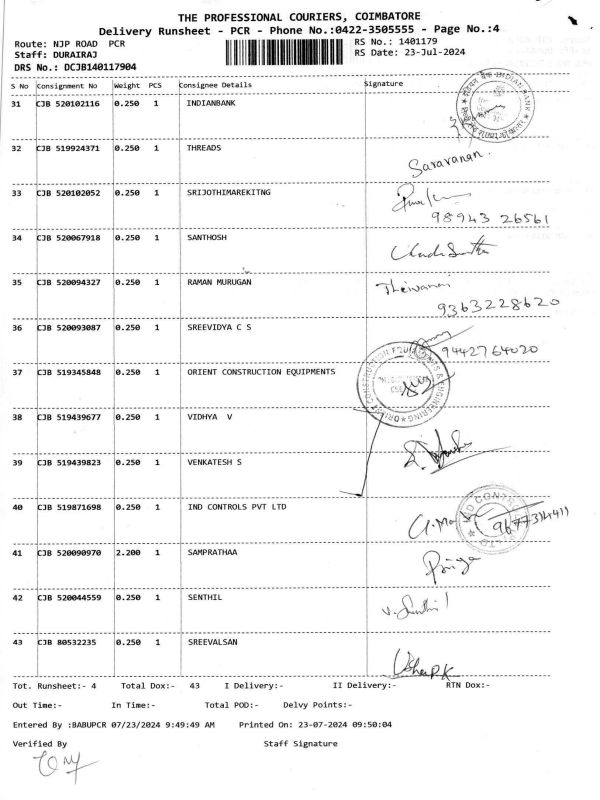 THE PROFESSIONAL COURIERS, COIMBATORE
Delivery Runsheet - PCR - Phone No.:0422-3505555 - Page No.:4
Route: NJP ROAD PCR RS No.: 1401179
Staff: DURAIRAJ RS Date: 23-Jul-2024
DRS No.: DCJB140117904
S No Consignment No Weight PCS Consignee Details Signature
31 CJB 520102116 0.250 1 INDIANBANK
32 CJB 519924371 0.250 1 THREADS Saravanan.
33 CJB 520102052 0.250 1 SRIJOTHIMAREKITNG
98943 26561
34 CJB 520067918 0.250 1 SANTHOSH
35 CJB 520094327 0.250 1 RAMAN MURUGAN Theivanai
9363228620
36 CJB 520093087 0.250 1 SREEVIDYA C S
9442764020
37 CJB 519345848 0.250 1 ORIENT CONSTRUCTION EQUIPMENTS
38 CJB 519439677 0.250 1 VIDHYA V
39 CJB 519439823 0.250 1 VENKATESH S
40 CJB 519871698 0.250 1 IND CONTROLS PVT LTD
41 CJB 520090970 2.200 1 SAMPRATHAA Priya
42 CJB 520044559 0.250 1 SENTHIL
43 CJB 80532235 0.250 1 SREEVALSAN Usha P.K
Tot. Runsheet:- 4 Total Dox:- 43 I Delivery:- II Delivery:- RTN Dox:-
Out Time:- In Time:- Total POD:- Delvy Points:-
Entered By :BABUPCR 07/23/2024 9:49:49 AM Printed On: 23-07-2024 09:50:04
Verified By Staff Signature